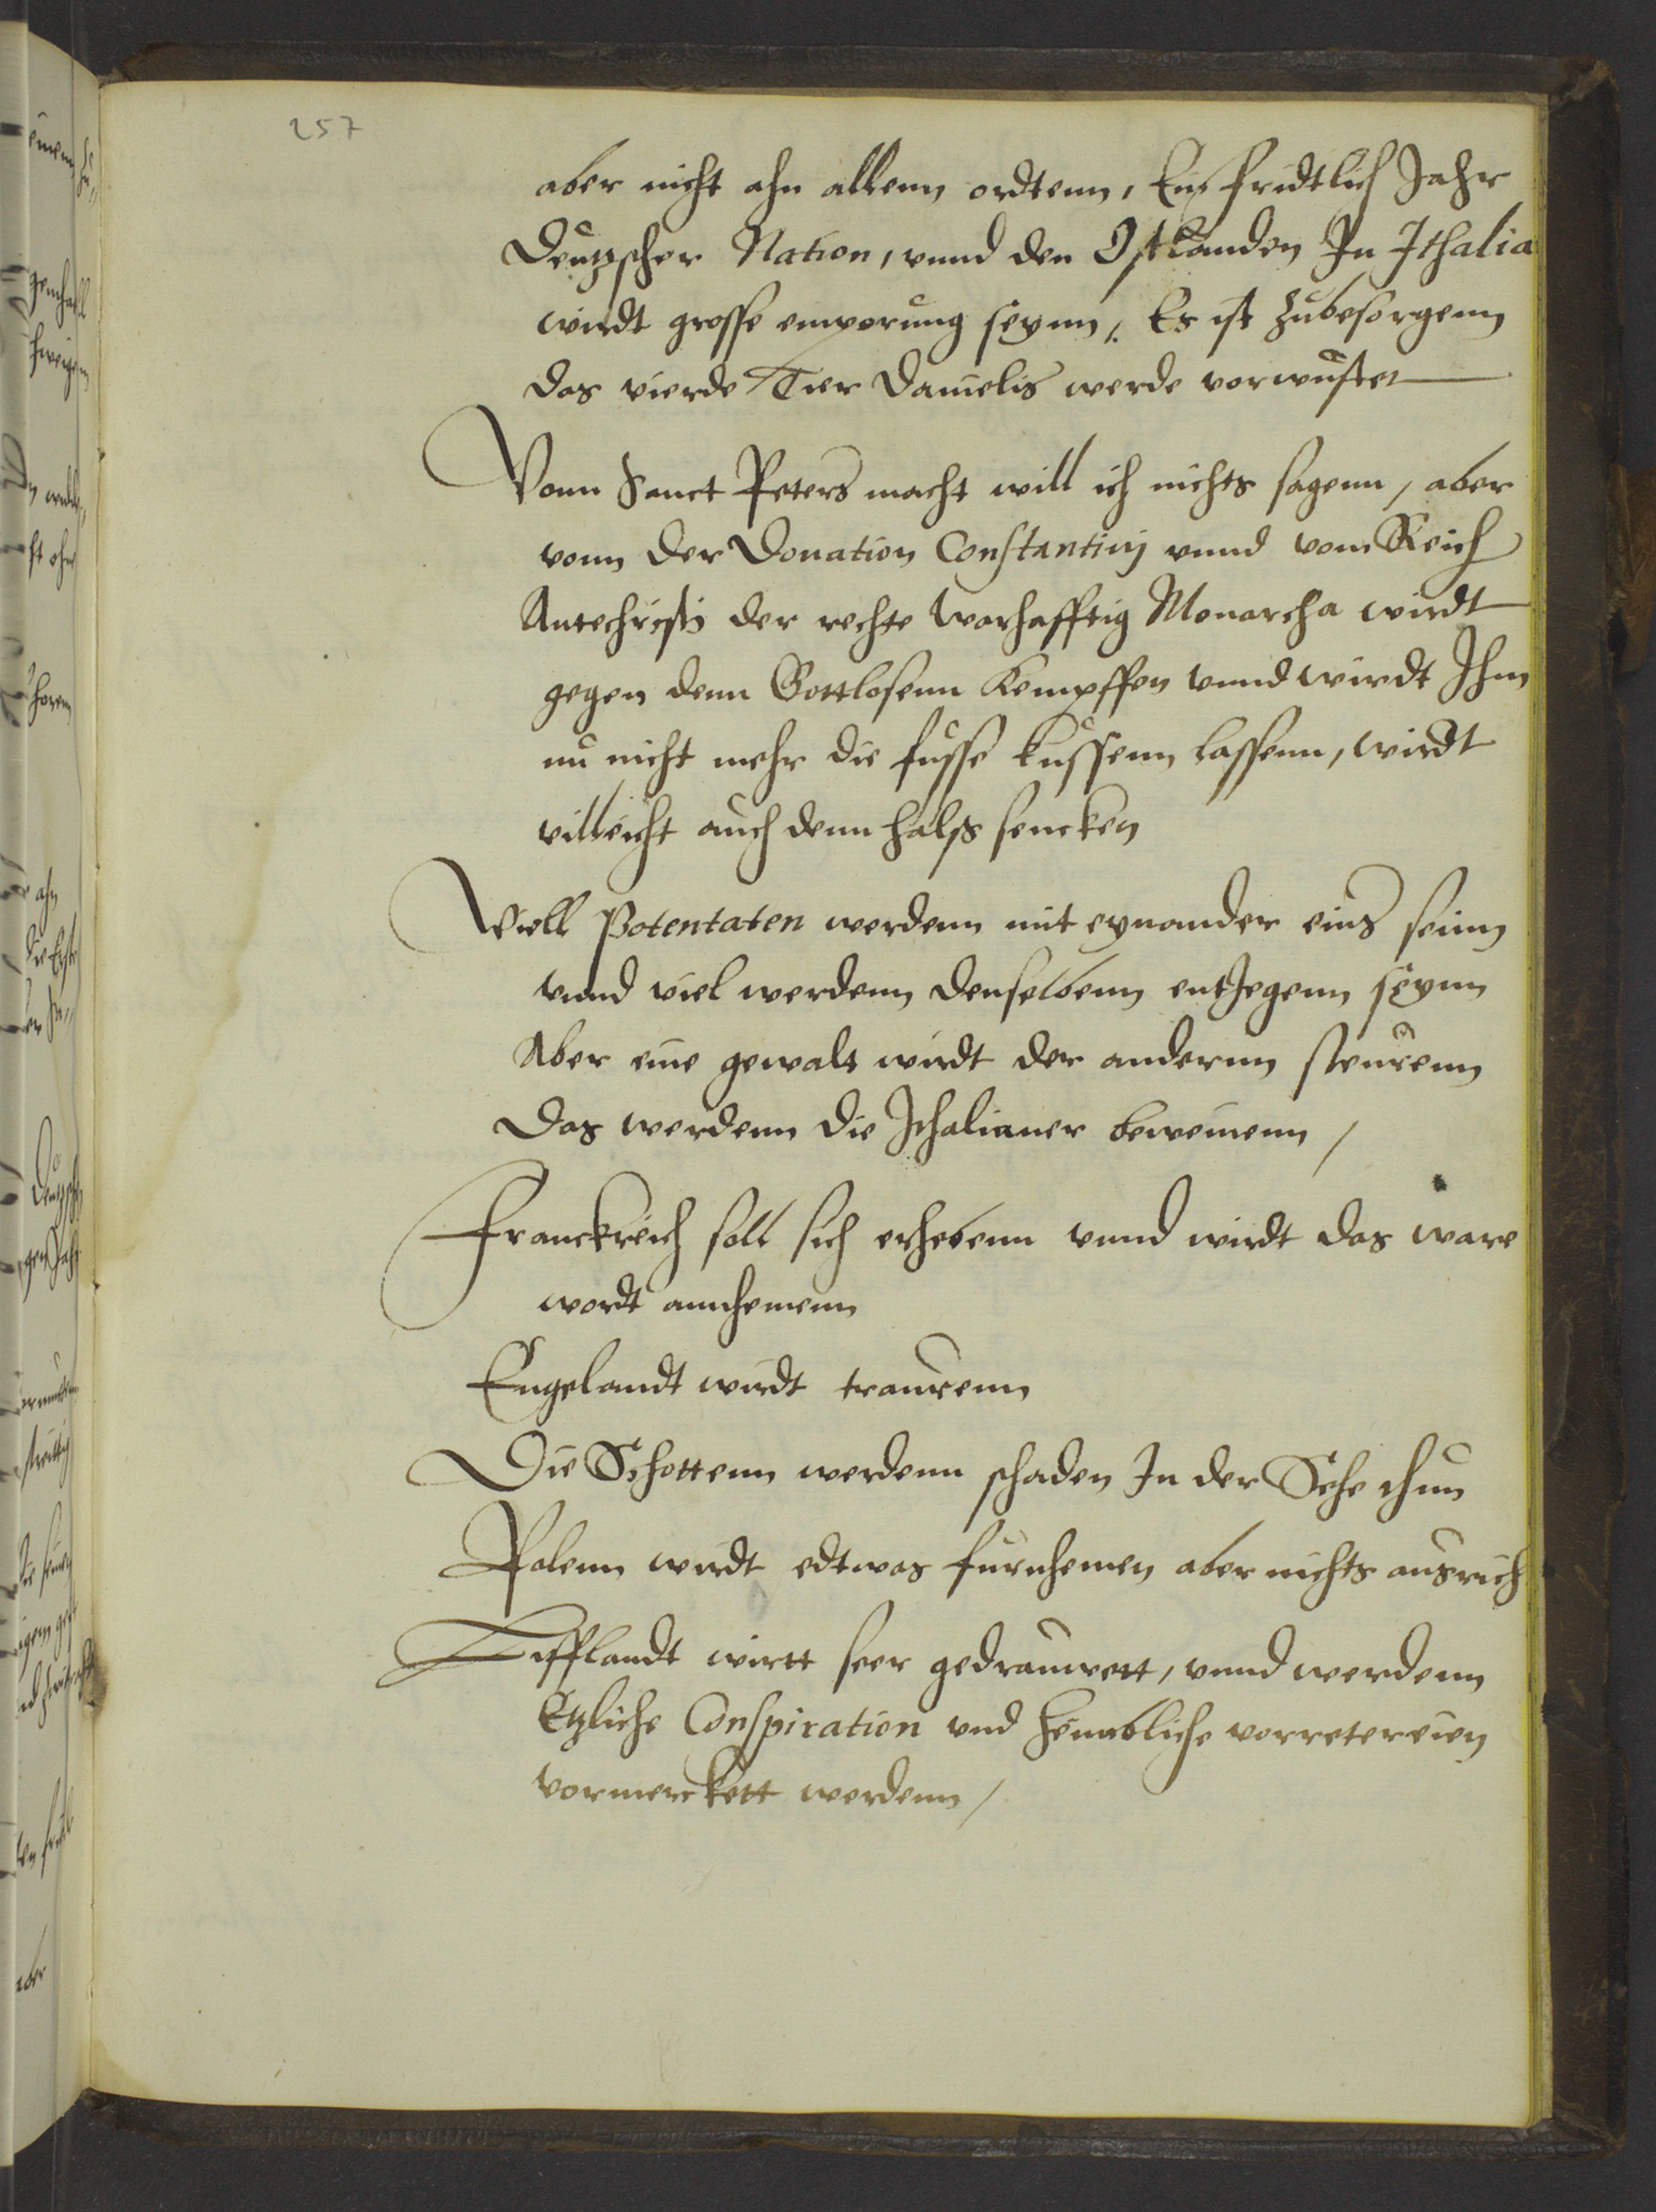 257
aber nicht ahn allenn ordtenn, Ein fridtlich Jahr
Deutzscher Nation, vnnd den Ostlanden In Ithalia
wirdt grosse emporung seynn, Es ist zubesorgenn
das vierde Tier Danielis werde vorwustet
Vonn Sanct Peters macht will ich nichts sagenn, aber
vonn der Donation Constantinj vnnd vom Reich
Antechristj der rechte warhafftig Monarcha wirdt
gegen denn Gottlosenn Kempffen vnnd wirdt Ihm
nu nicht mehr die fusse kussenn lassenn, wirdt
villeicht auch denn halss sencken
Viell Potentaten werdenn mit eynander eins seinn
vnnd viel werdenn denselbenn entJegenn seynn
Aber eine gewalt wirdt der andernn steurenn
Das werdenn die Ithalianer beweinenn /
Franckreich soll sich erhebenn vnnd wirdt das ware
wordt annehmenn
Engelandt wirdt traurenn
Die Schottenn werdenn schaden In der Sehe thun
Polenn wirdt edtwas furnhemen aber nichts ausrich
Lifflandt wirtt seer gedrauwett, vnnd werdenn
Etzliche Conspiration vnd heimbliche vorretereien
vormerckett werdenn /